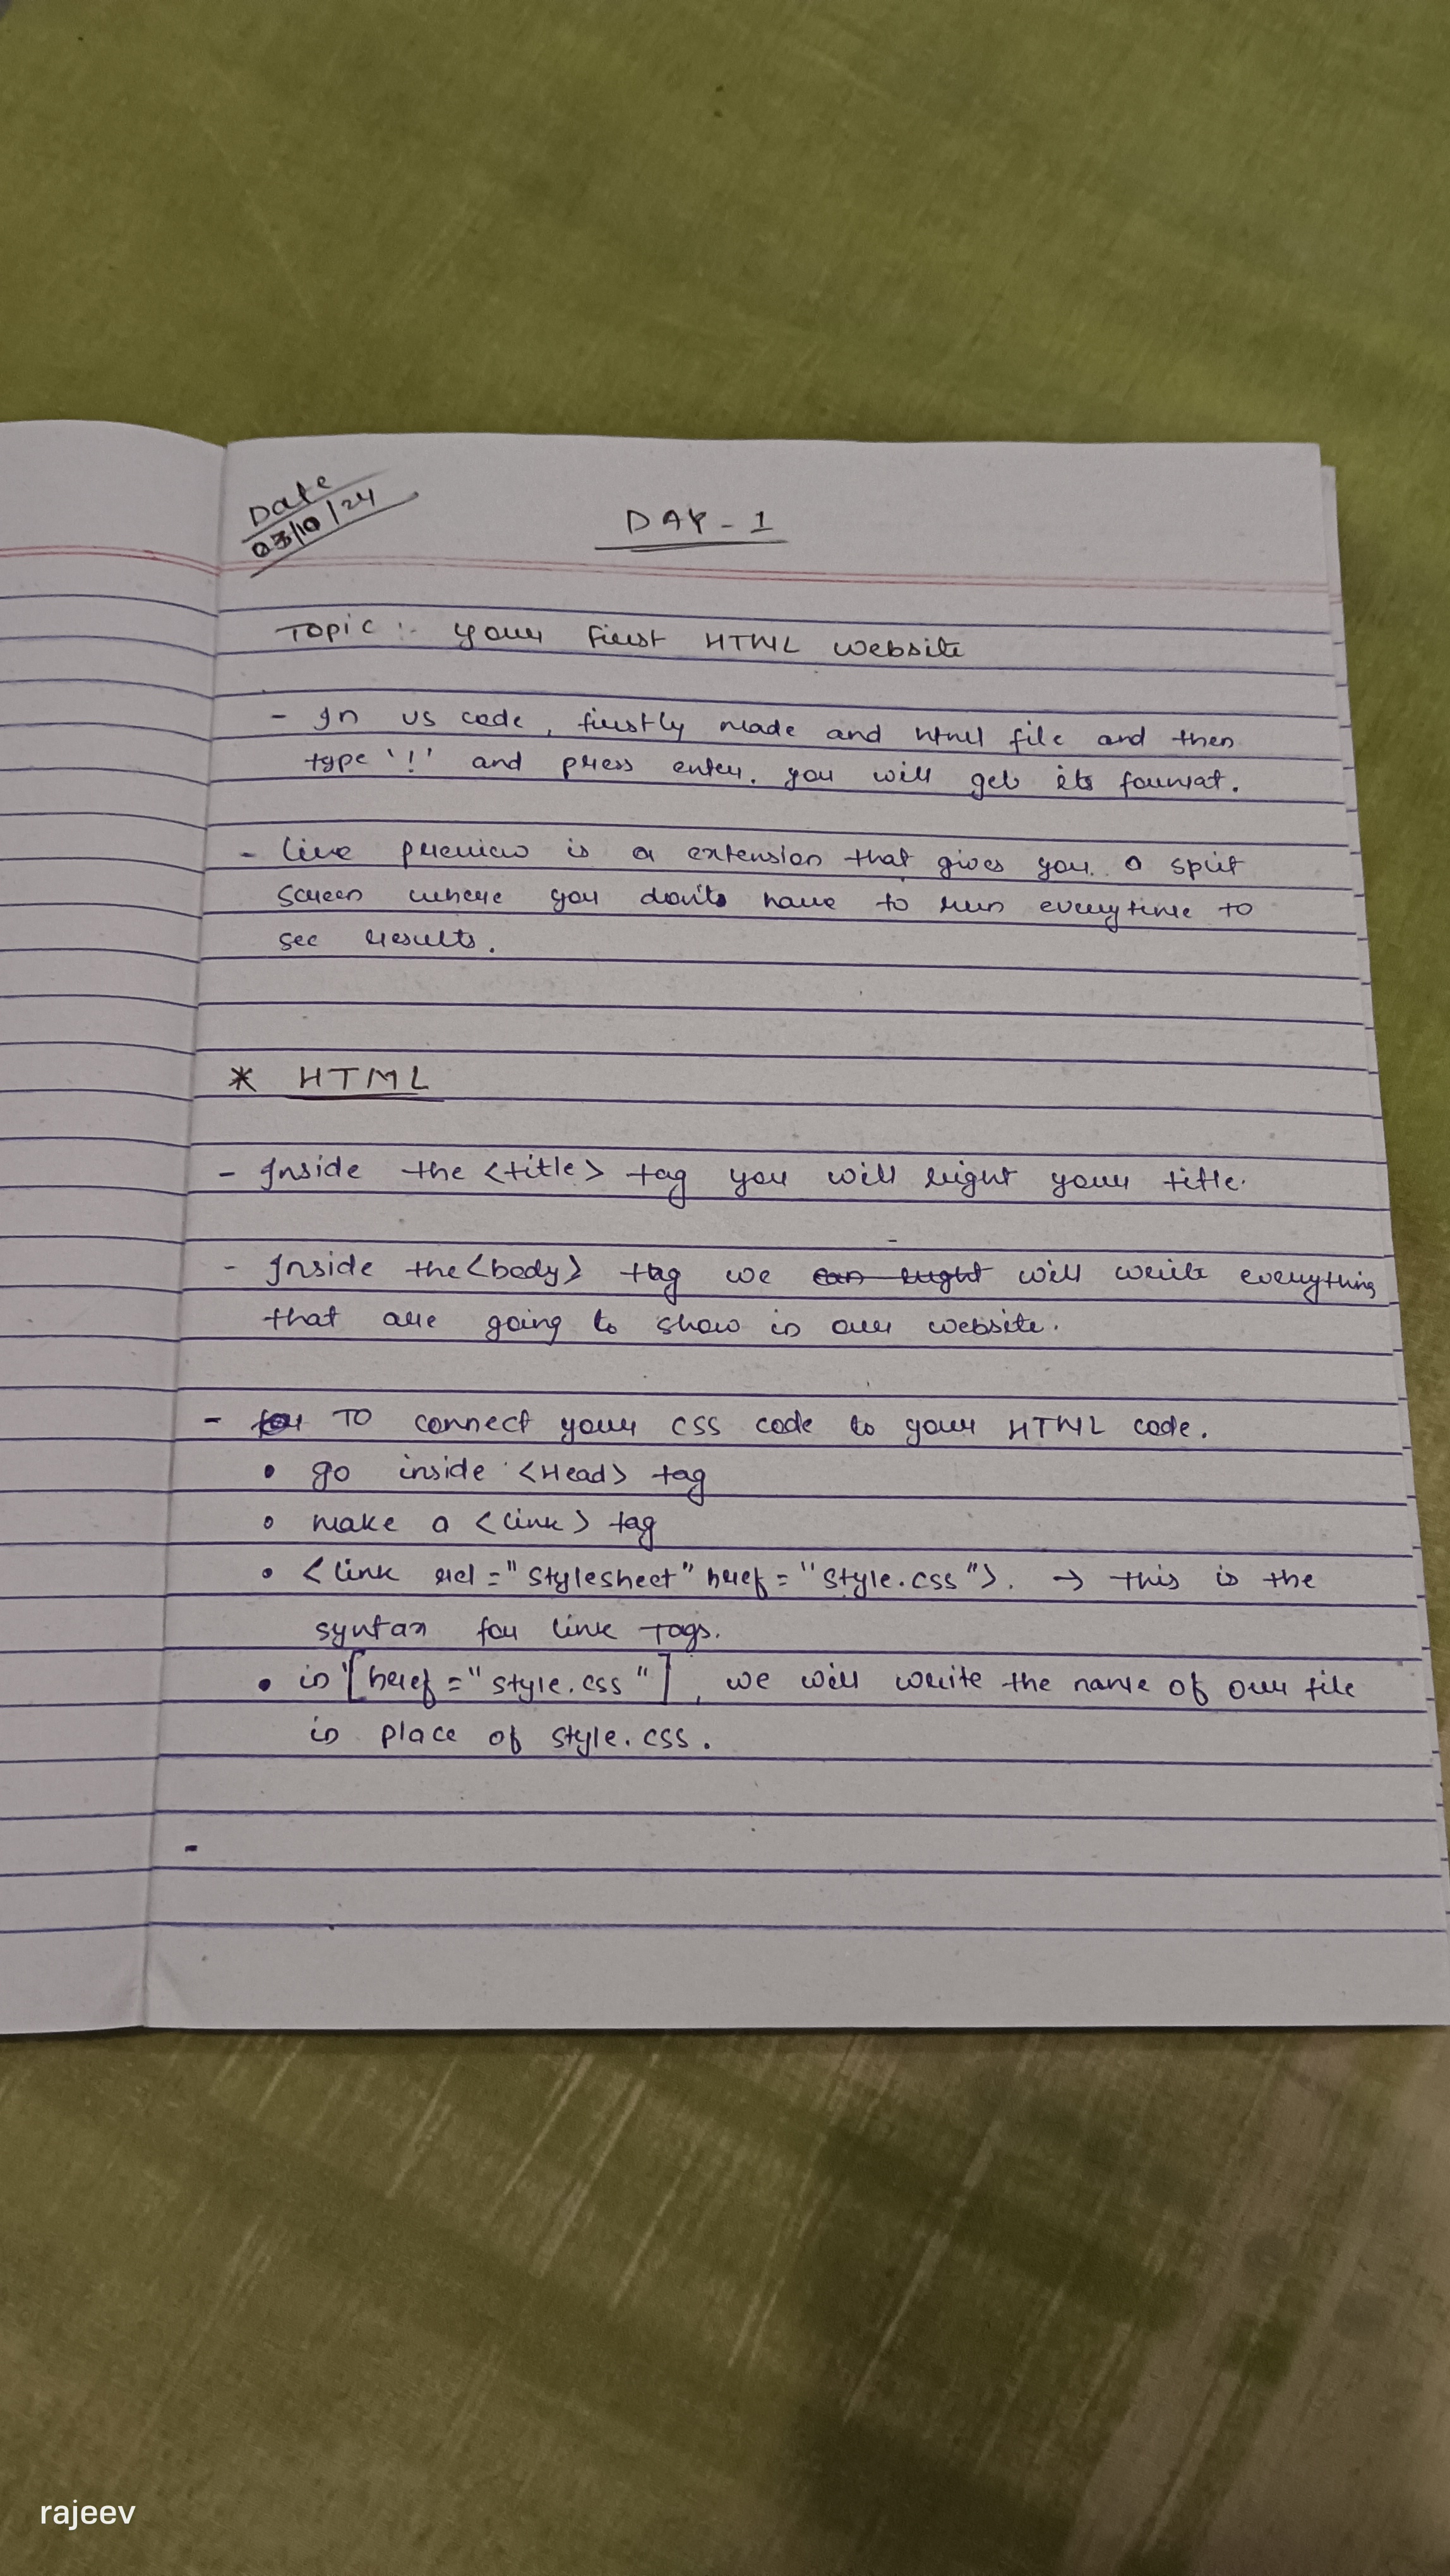 Date
03/10/24
DAY - 1
Topic :- your first HTML website
- In VS code, firstly made and html file and then
type '!' and press enter. you will get its format.
- live preview is a extension that gives you a split
screen where you don't have to run everytime to
see results.
* HTML
- Inside the <title> tag you will right your title.
- Inside the <body> tag we can right will write everything
that are going to show in our website.
- for TO connect your css code to your HTML code.
• go inside <Head> tag
• make a <link> tag
• <link rel="stylesheet" href="style.css">. → this is the
syntax for link Tags.
• in [href="style.css"], we will write the name of our file
in place of style.css.
-
rajeev